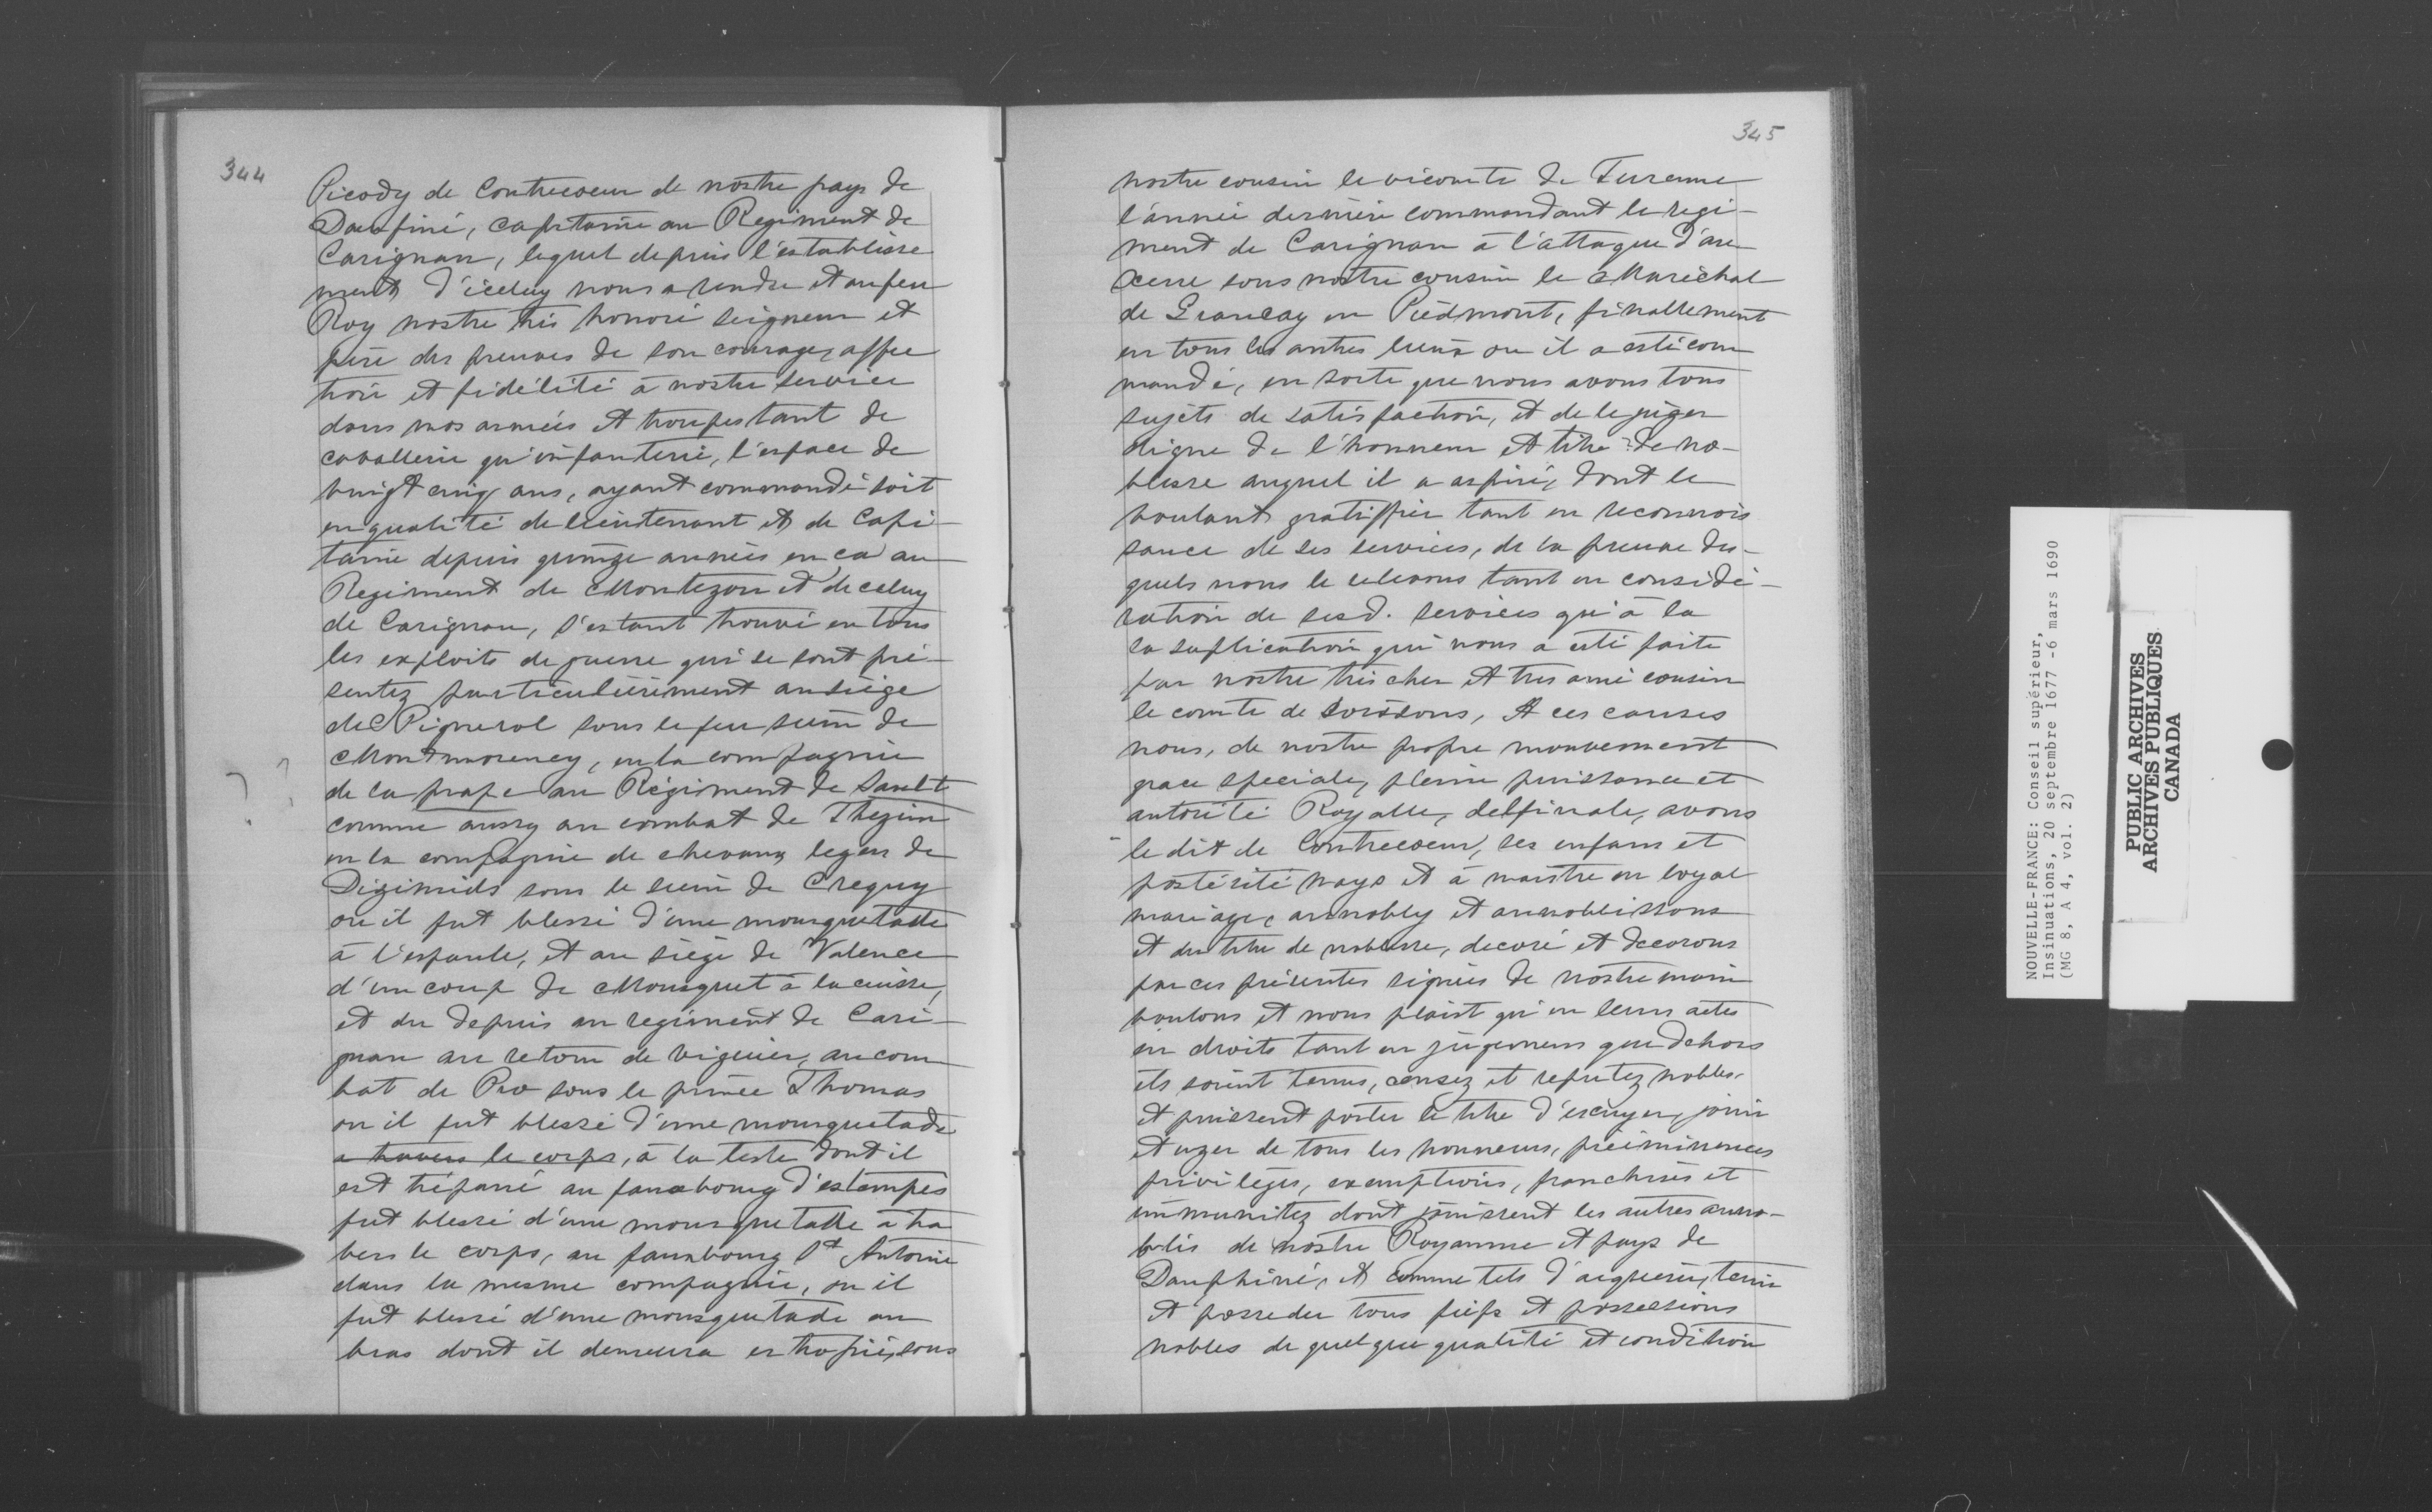 344
Picody de Contrecoeur de nostre pays de
Daufiné, capitaine au Regiment de
Carignan, lequel depuis l'establisse
ment d'iceluy nous a rendu et au feu
Roy nostre très honoré seigneur et
père des preuves de son courage, affec
tion et fidélité à nostre service
dans nos armées et troupes tant de
cavallerie qu'infanterie, l'espace de
vingt cinq ans, ayant commandé soit
en qualité de lieutenant et de Capi-
taine depuis quinze années en ca au
Regiment de Montezon et de celuy
de Carignan, s'estant trouvé en tous
les exploits de guerre qui se sont pré-
sentez particulièrement au siège
de Pignerol sous le feu sieur de
Montmorency, en la compagnie
de la prape au Régiment de Sault
comme aussy au combat de Thezin
en la compagnie de chevaux legers de
Dizimieds sous le sieur de Crequy
ou il fut blessé d'une mousquetade
à l'espaule, et au siège de Valence
d'un coup de Mousquet à la cuisse,
et du depuis au regiment de Cari-
gnan au retour de viguier, au com
bat de Pro sous le prince Thomas
ou il fut blessé d'une mousquetade
a travers le corps, à la teste dont il
est trépané au fauxbourg d'estampes
fut blessé d'une mousquetade à tra
vers le corps, au fauxbourg St Antoine
dans la mesme compagnie, ou il
fut blessé d'une mousquetade au
bras dont il demeura estropié, sous
345
nostre cousin le vicomte de Turenne
l'année dernière commandant le regi-
ment de Carignan à l'attaque d'au
xerre sous nostre cousin le Maréchal
de Grancay en Piedmont, finallement
en tous les autres lieux ou il a esté com
mandé, en sorte que nous avons tous
sujets de satisfaction, et de le juger
digne de l'honneur et titre de no-
blesse auquel il a aspiré, dont le
voulant gratiffier tant en reconnois
sance de ses services, de la preuve des-
quels nous le relevons tant en considé-
ration de sesd. services qu'à la
la suplication qui nous a esté faite
par nostre très cher et tres amé cousin
le comte de Soissons, A ces causes
nous, de nostre propre mouvement
grace speciale, pleine puissance et
autorité Royalle, delfinale, avons
le dit de Contrecoeur, ses enfans et
postérité nays et à naistre en loyal
mariage, annobly et annoblissons
et du titre de noblesse, decoré et decorons
par ces présentes signées de nostre main
voulons et nous plaist qu'en leurs actes
en droits tant en jugemens que dehors
ils soient tenus, censez et reputez nobles
et puissent porter le titre d'escuyer, jouir
et uzer de tous les honneurs, prééminences
privilèges, exemptions, franchises et
immunitez dont jouissent les autres anno-
blis de nostre Royaume et pays de
Dauphiné, et comme tels d'acquerir, tenir
et posseder tous fiefs et possessions
nobles de quelque qualité et condition
NOUVELLE-FRANCE: Conseil supérieur,
Insinuations, 20 septembre 1677 -6 mars 1690
(MG 8, A 4, vol. 2)
PUBLIC ARCHIVES
ARCHIVES PUBLIQUES
CANADA